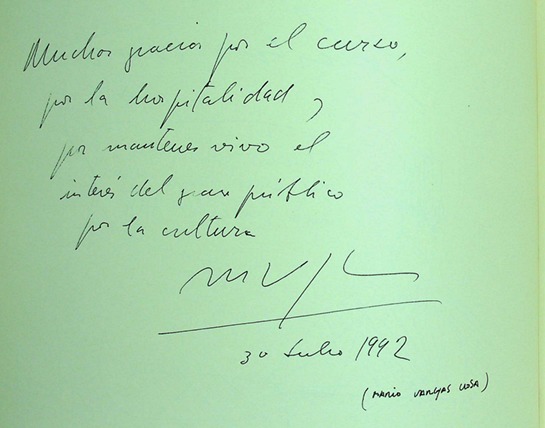 Muchas gracias por el curso,
por la hospitalidad y
por mantener vivo el
interés del gran público
por la cultura
30 Julio 1992
(MARIO VARGAS LLOSA)